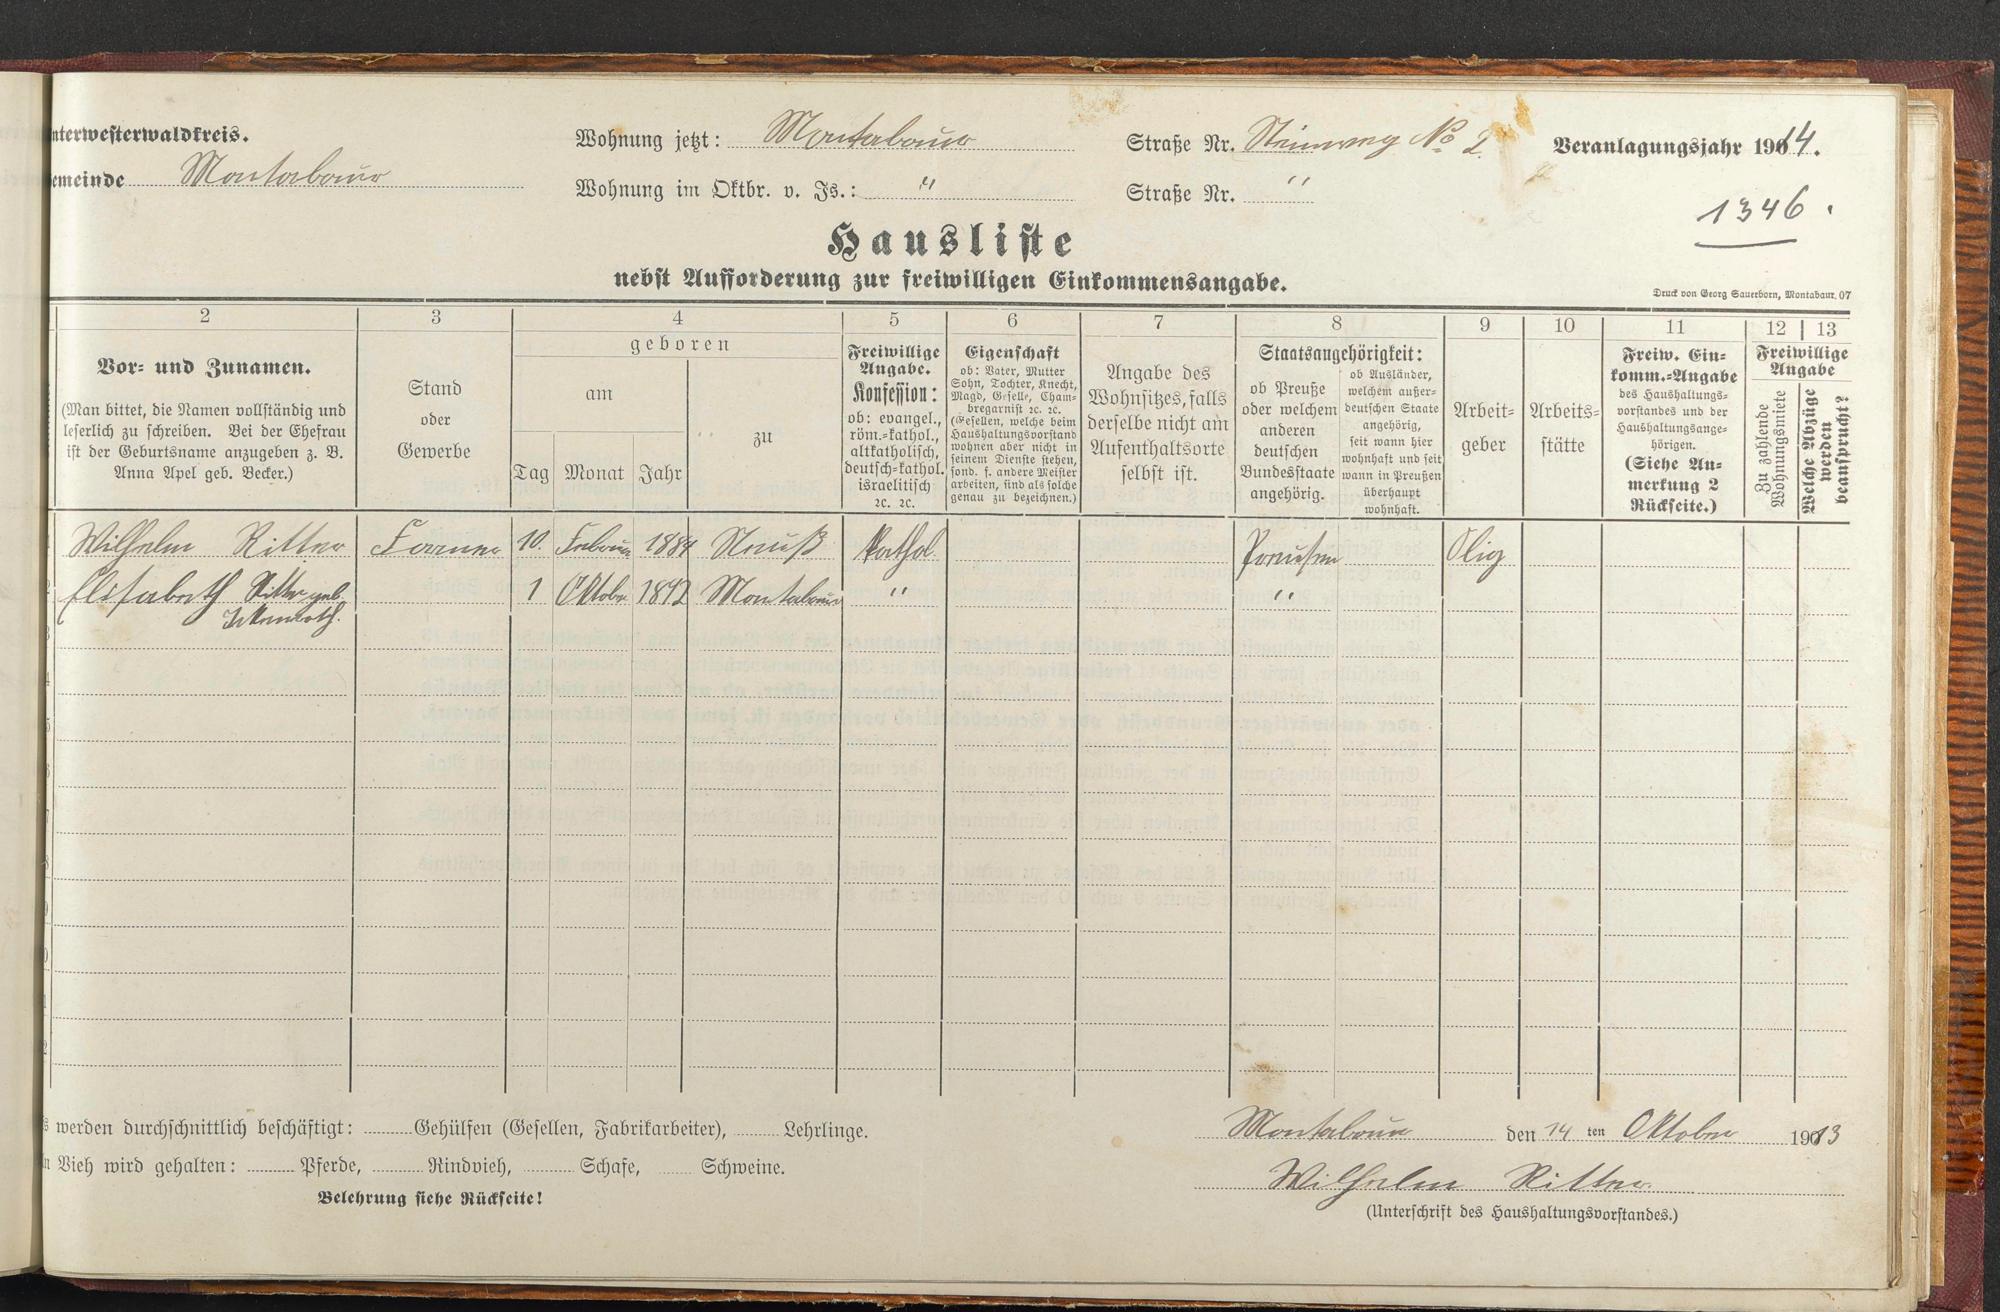 nterwesterwaldkreis.
emeinde Montabaur
Wohnung jetzt: Montabaur
Straße Nr. Steinweg No 2.
Veranlagungsjahr 1914.
Wohnung im Oktbr. v. Js.: "
Straße Nr. "
1346.
Hausliste
nebst Aufforderung zur freiwilligen Einkommensangabe.
Druck von Georg Sauerborn, Montabaur. 07
2 3 4 5 6 7 8 9 10 11 12 13
Vor- und Zunamen.
(Man bittet, die Namen vollständig und
leserlich zu schreiben. Bei der Ehefrau
ist der Geburtsname anzugeben z. B.
Anna Apel geb. Becker.)
Stand
oder
Gewerbe
geboren
am
Tag Monat Jahr
zu
Freiwillige
Angabe.
Konfession:
ob: evangel.,
röm.-kathol.,
altkatholisch,
deutsch-kathol.
israelitisch
ꝛc. ꝛc.
Eigenschaft
ob: Vater, Mutter
Sohn, Tochter, Knecht,
Magd, Geselle, Cham-
bregarnist ꝛc. ꝛc.
(Gesellen, welche beim
Haushaltungsvorstand
wohnen aber nicht in
seinem Dienste stehen,
sond. f. andere Meister
arbeiten, sind als solche
genau zu bezeichnen.)
Angabe des
Wohnsitzes, falls
derselbe nicht am
Aufenthaltsorte
selbst ist.
Staatsangehörigkeit:
ob Preuße
oder welchem
anderen
deutschen
Bundesstaate
angehörig.
ob Ausländer,
welchem außer-
deutschen Staate
angehörig,
seit wann hier
wohnhaft und seit
wann in Preußen
überhaupt
wohnhaft.
Arbeit-
geber
Arbeits-
stätte
Freiw. Ein-
komm.-Angabe
des Haushaltungs-
vorstandes und der
Haushaltungsange-
hörigen.
(Siehe An-
merkung 2
Rückseite.)
Freiwillige
Angabe
Zu zahlende
Wohnungsmiete
Welche Abzüge
werden
beansprucht?
1 Wilhelm Ritter Former 10. Februar 1884 Neuß kathol. Preußen Olig
2 Elisabeth Ritter geb. 1 Oktobr 1892 Montabaur " "
3
4
5
6
7
8
9
0
1
2
s werden durchschnittlich beschäftigt: Gehülfen (Gesellen, Fabrikarbeiter), Lehrlinge.
n Vieh wird gehalten: Pferde, Rindvieh, Schafe, Schweine.
Belehrung siehe Rückseite!
Montabaur den 14 ten Oktober 1913
Wilhelm Ritter.
(Unterschrift des Haushaltungsvorstandes.)